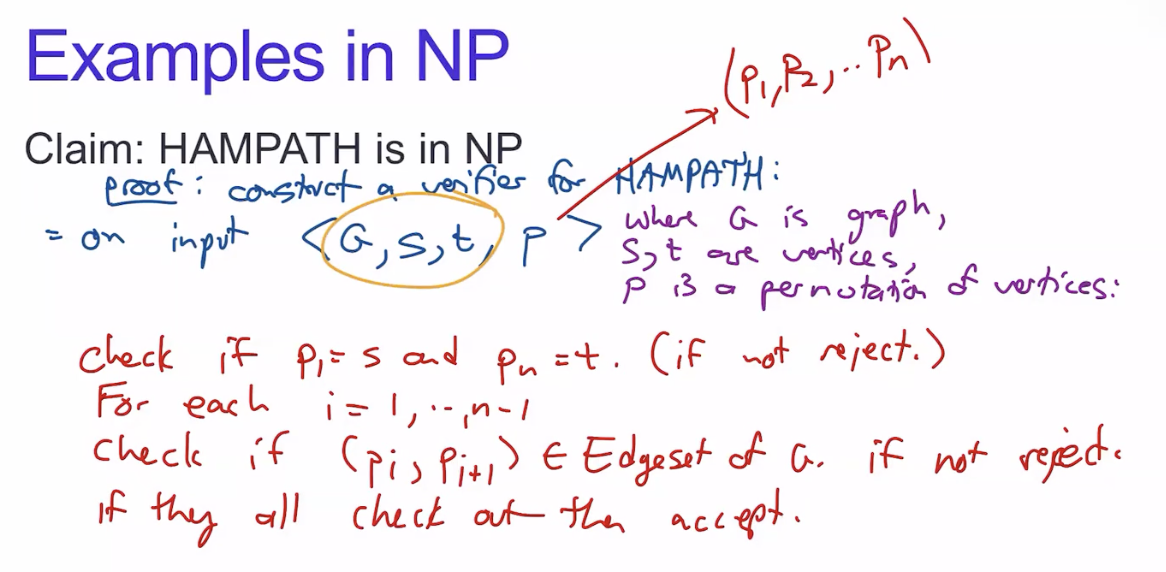 Examples in NP
(P1, P2, .. Pn)
Claim: HAMPATH is in NP
proof: construct a verifier for HAMPATH:
= on input <G, s, t, P> where G is graph,
s, t are vertices,
P is a permutation of vertices:
check if P1 = s and Pn = t. (if not reject.)
For each i = 1, .., n-1
check if (Pi, Pi+1) ∈ Edgeset of G. if not reject.
if they all check out then accept.